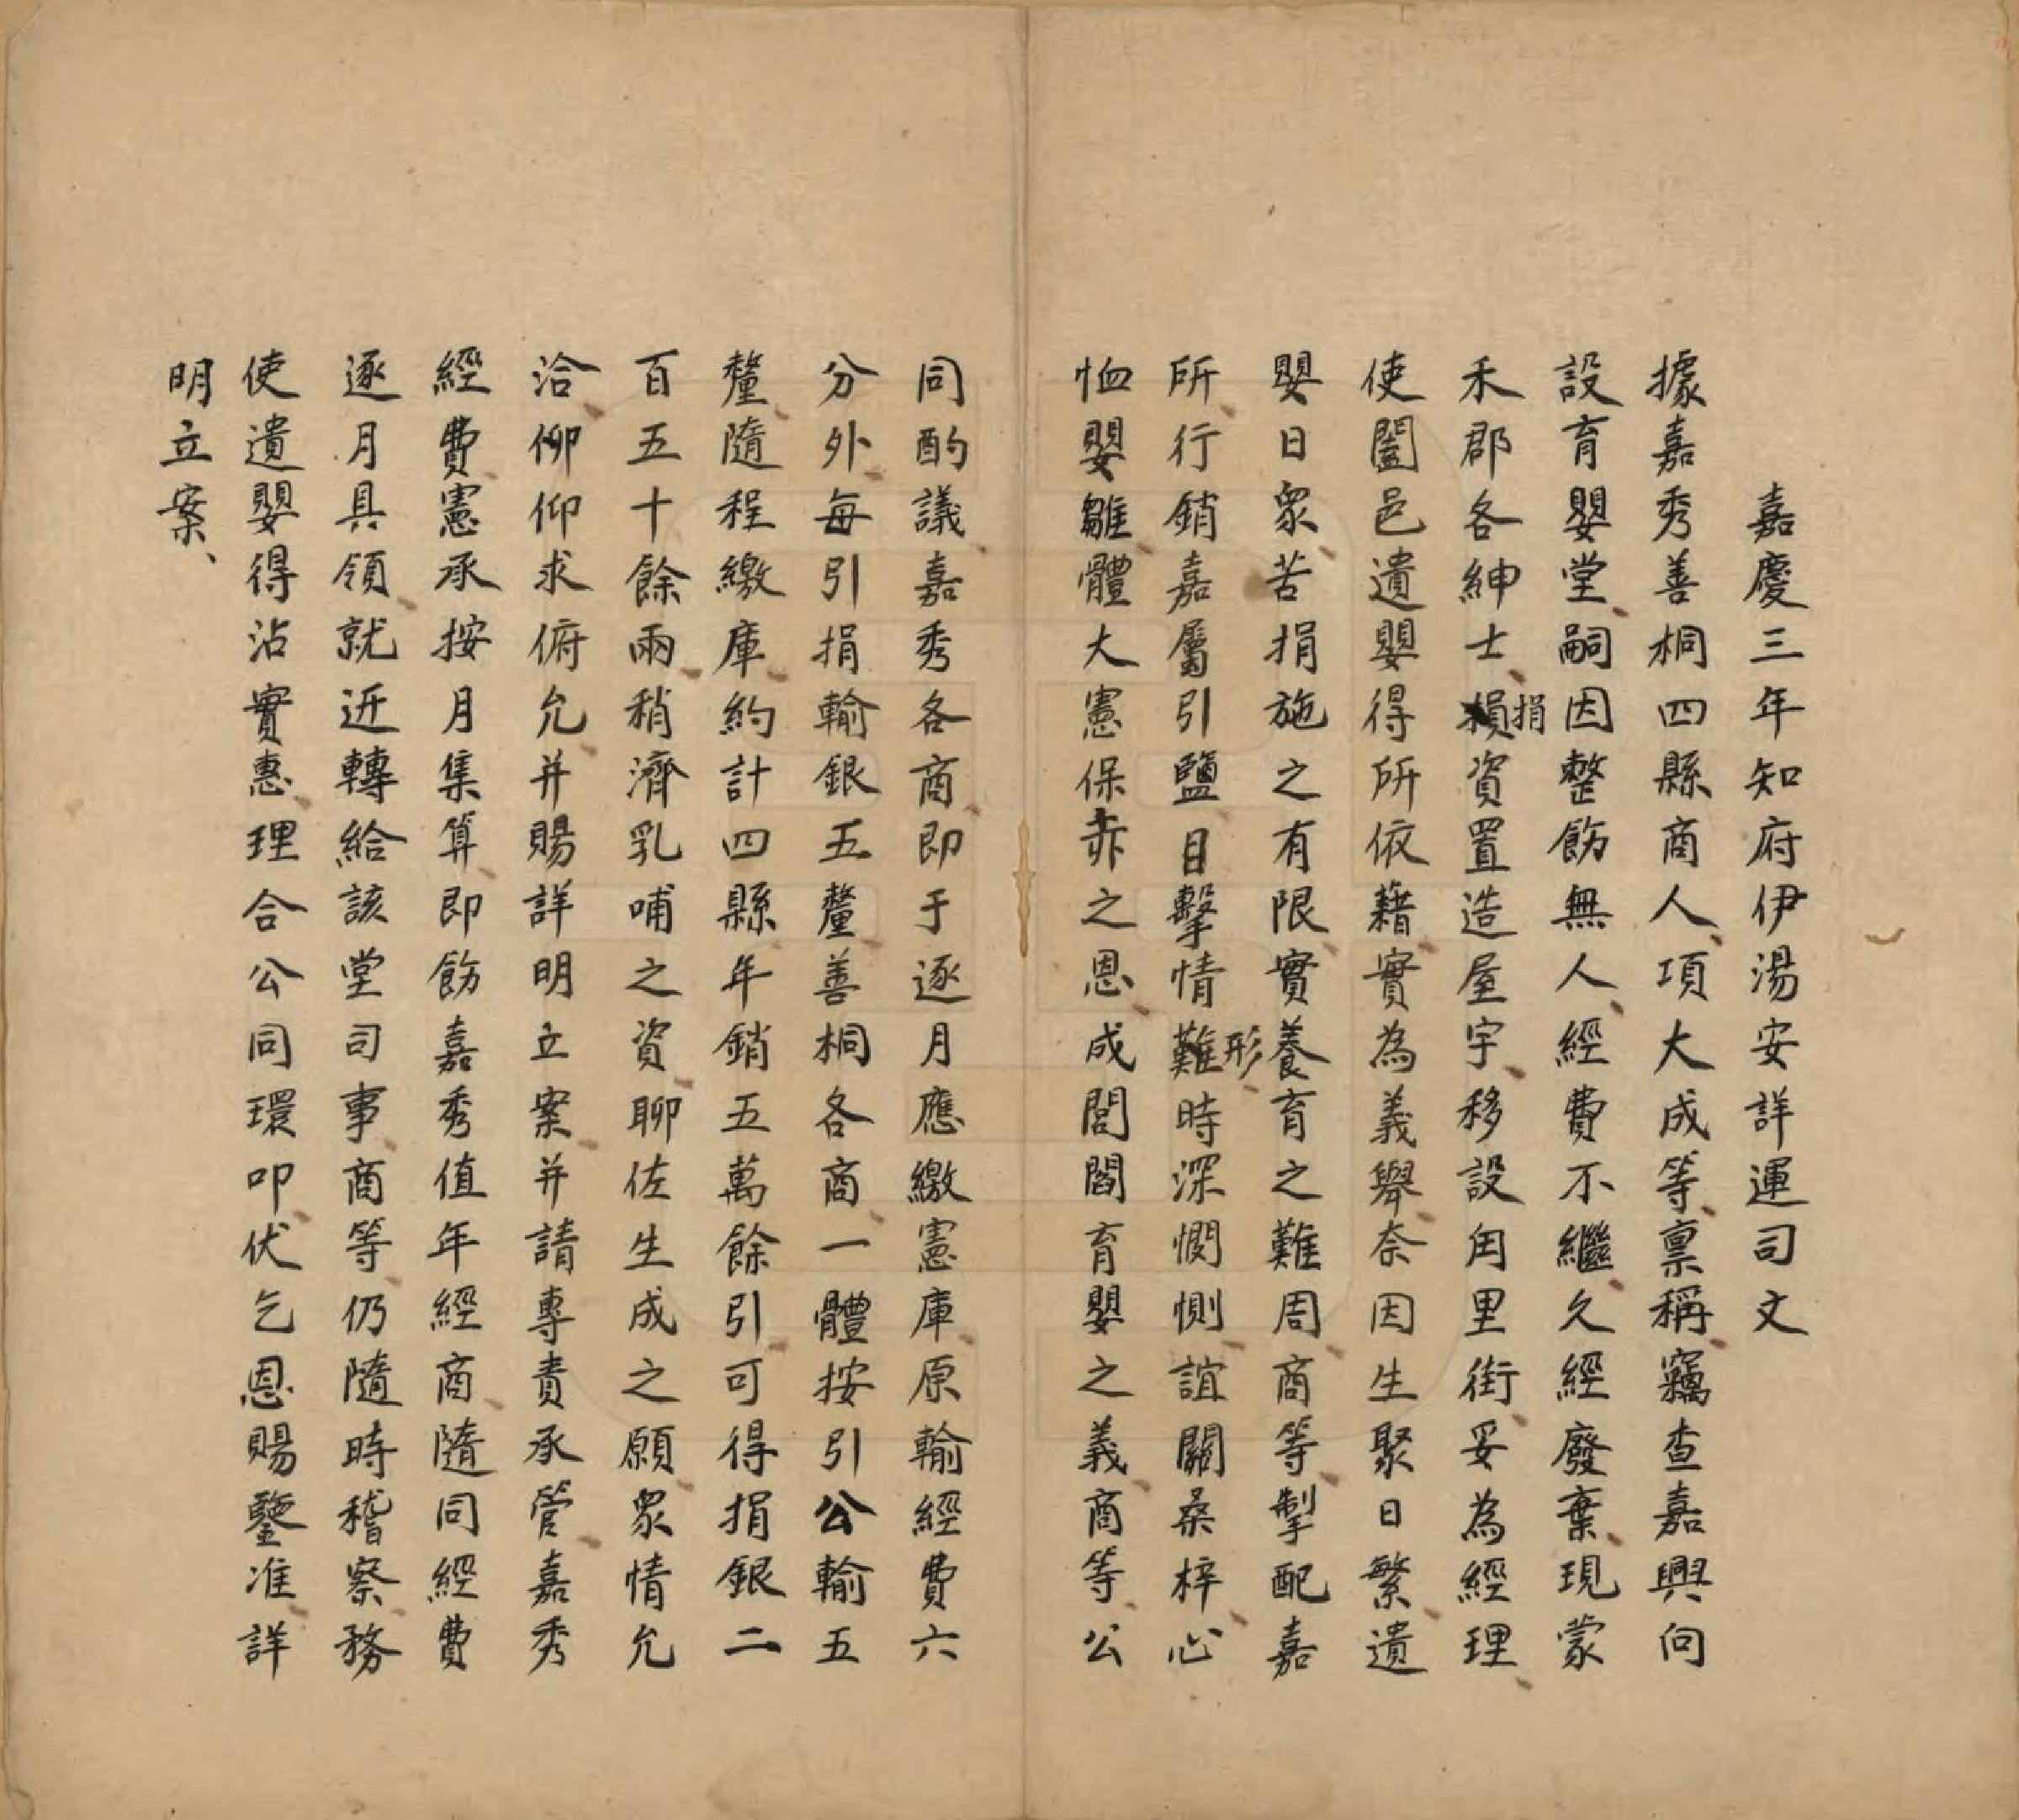 嘉慶三年知府伊湯安詳運司文
據嘉秀善桐四縣商人項大成等稟稱竊查嘉興向
設育嬰堂嗣因整飭無人經費不繼久經廢棄現蒙
禾郡各紳士損捐資置造屋宇移設甪里街妥為經理
使闔邑遺嬰得所依藉實為義舉奈因生聚日繁遺
嬰日衆苦捐施之有限實養育之難周商等掣配嘉
所行銷嘉屬引鹽目擊情難形時深憫惻誼關桑梓心
恤嬰雛體大憲保赤之恩成閭閻育嬰之義商等公
同酌議嘉秀各商即于逐月應繳憲庫原輸經費六
分外每引捐輸銀五釐善桐各商一體按引公輸五
釐隨程繳庫約計四縣年銷五萬餘引可得捐銀二
百五十餘兩稍濟乳哺之資聊佐生成之願衆情允
洽仰求俯允并賜詳明立案并請專責承管嘉秀
經費憲承按月集算即飭嘉秀值年經商隨同經費
逐月具領就近轉給該堂司事商等仍隨時稽察務
使遺嬰得沾實惠理合公同環叩伏乞恩賜鑒准詳
明立案、